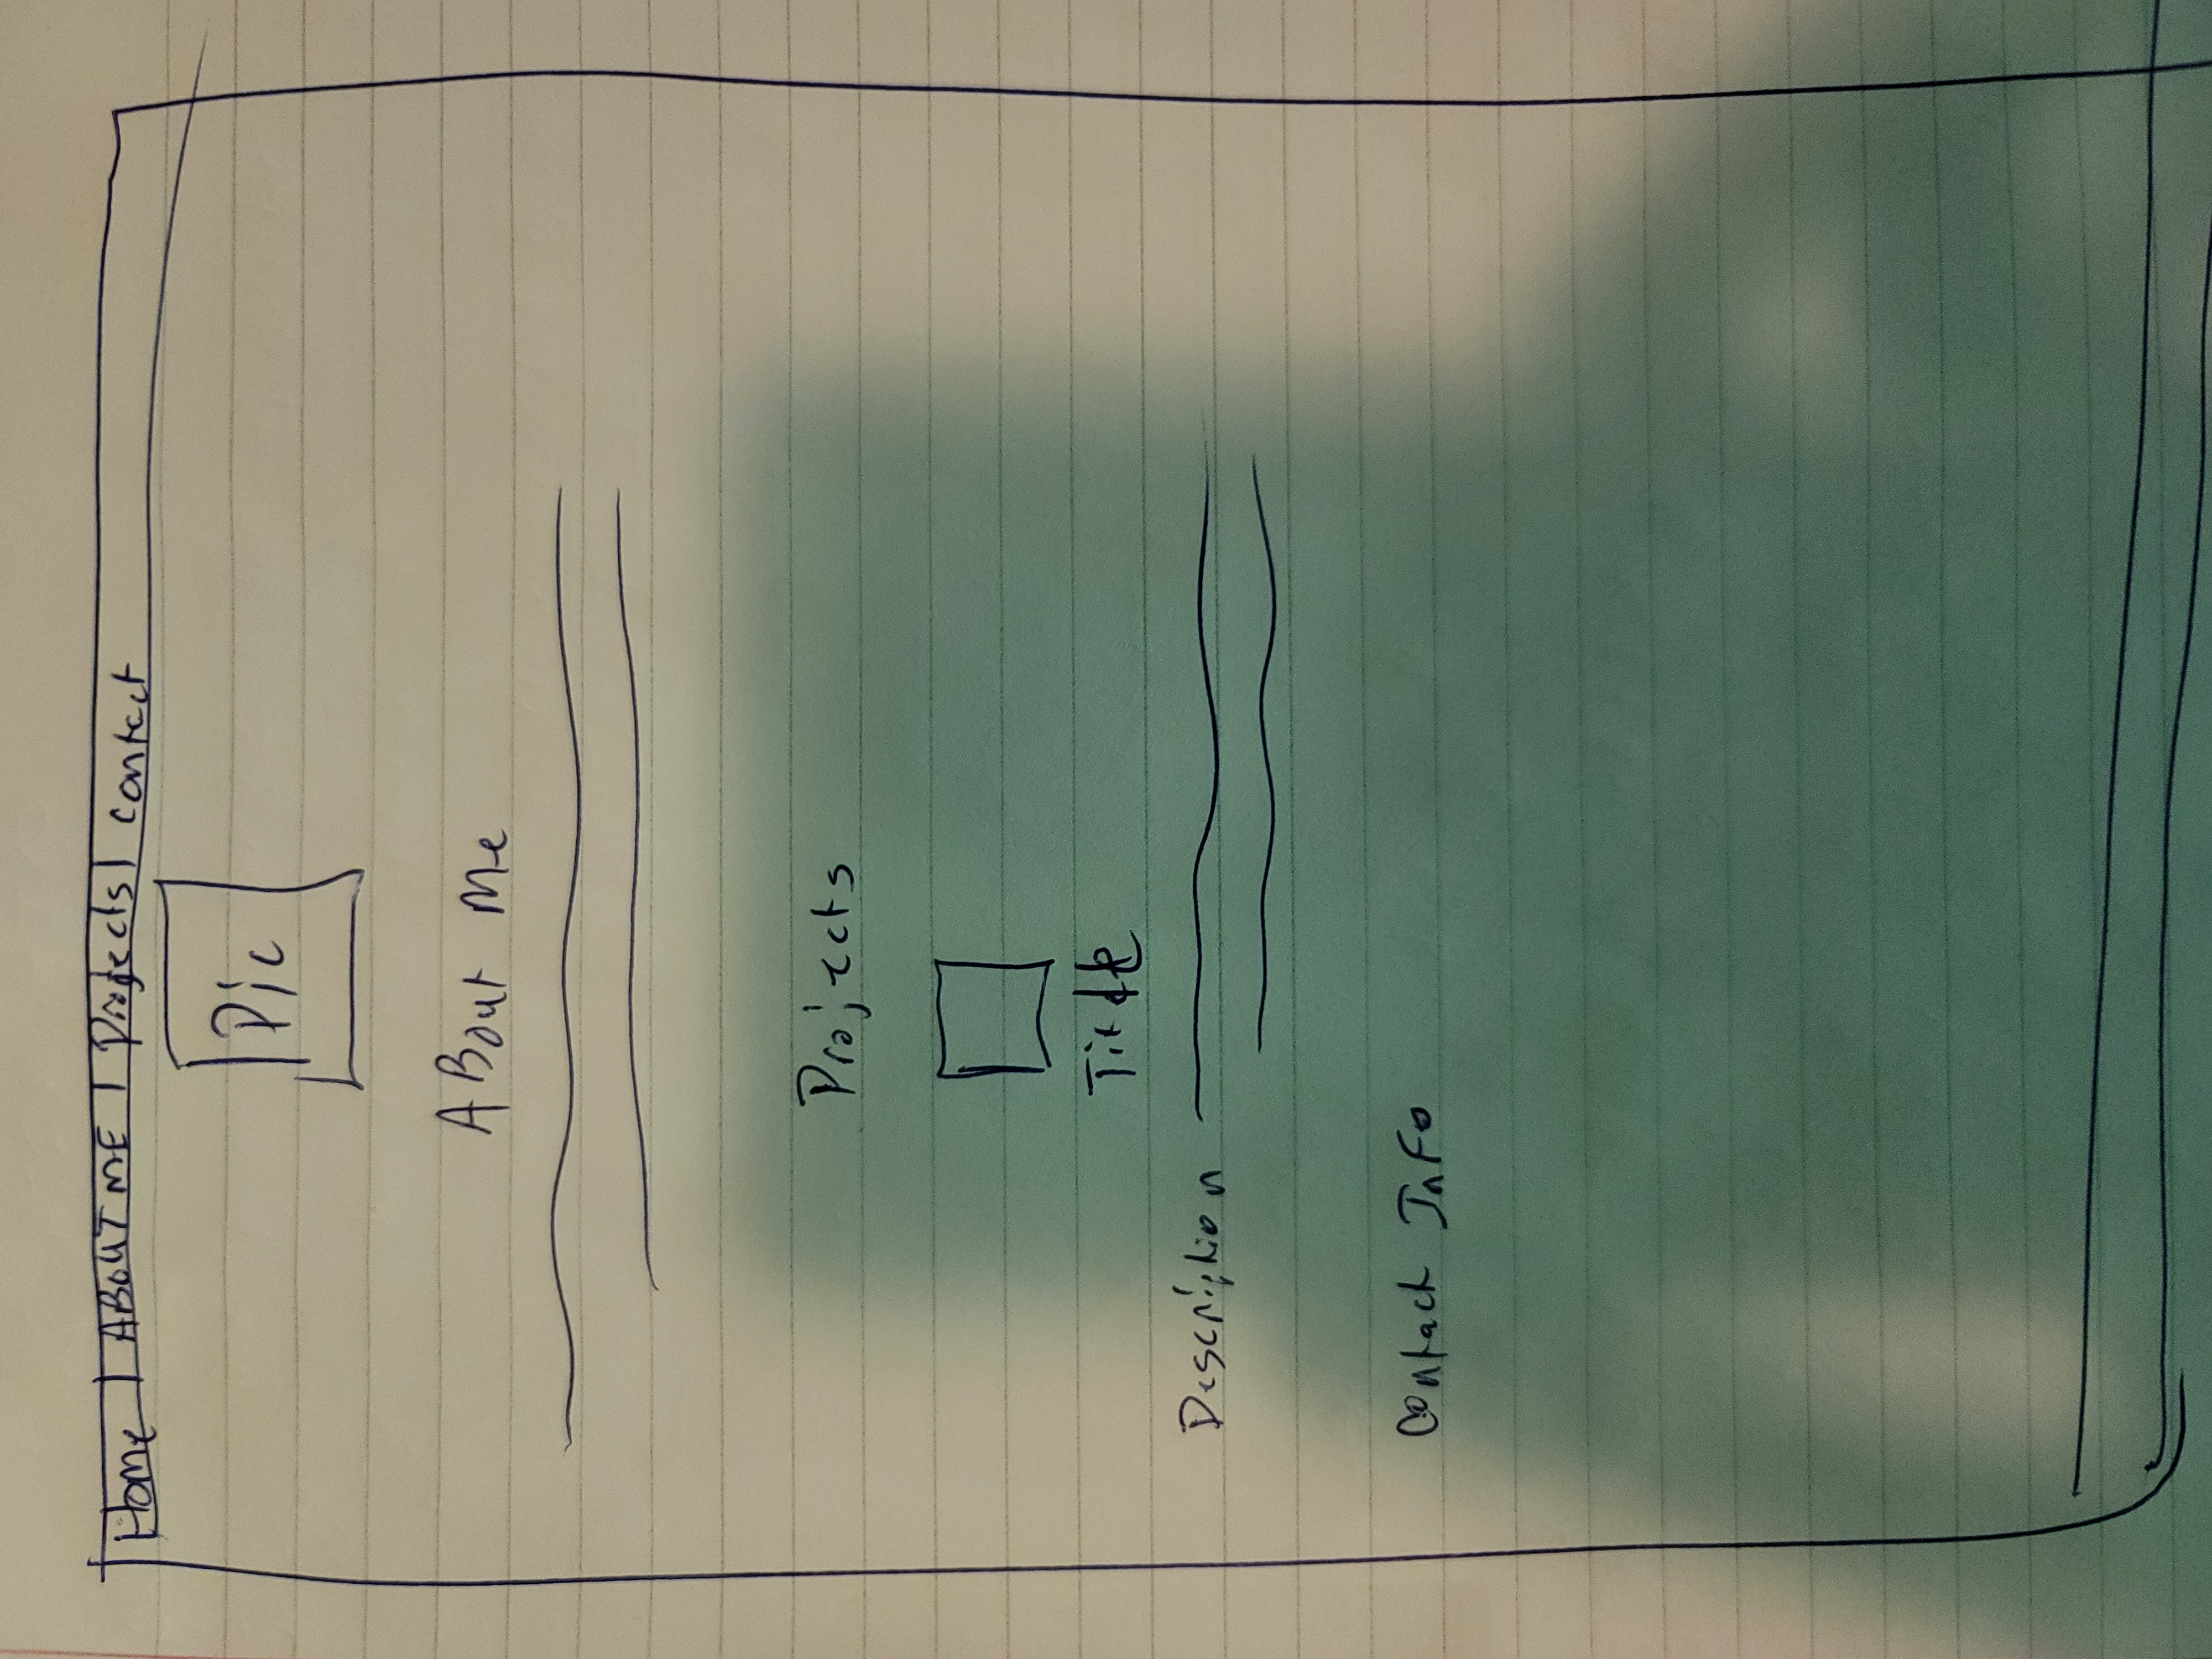 Home | ABOUT ME | Projects | contact
Pic
ABout Me
Projects
Title
Description
Contact Info